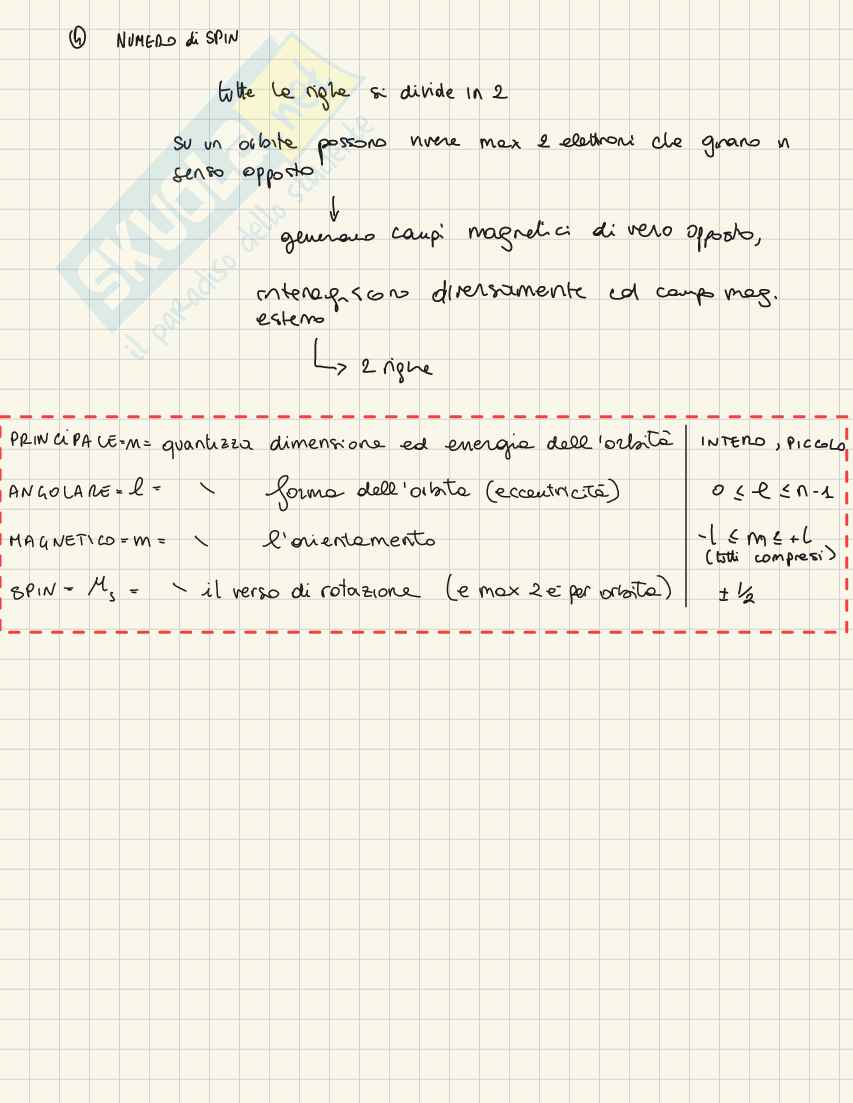 ④ NUMERO di SPIN
tutte le righe si divide in 2
su un orbite possono vivere max 2 elettroni che girano in
senso opposto
↓
generano campi magnetici di verso opposto,
interagiscono diversamente col campo mag.
esterno
↳ 2 righe
PRINCIPALE = n = quantizza dimensione ed energia dell'orbità | INTERO, PICCOLO
ANGOLARE = l = \ forma dell'orbita (eccentricità) | 0 ≤ l ≤ n-1
MAGNETICO = m = \ l'orientamento | -l ≤ m ≤ +l
(tutti compresi)
SPIN = Ms = \ il verso di rotazione (e max 2 e⁻ per orbita) | ± 1/2
SKUOLA.net
il paradiso dello studente